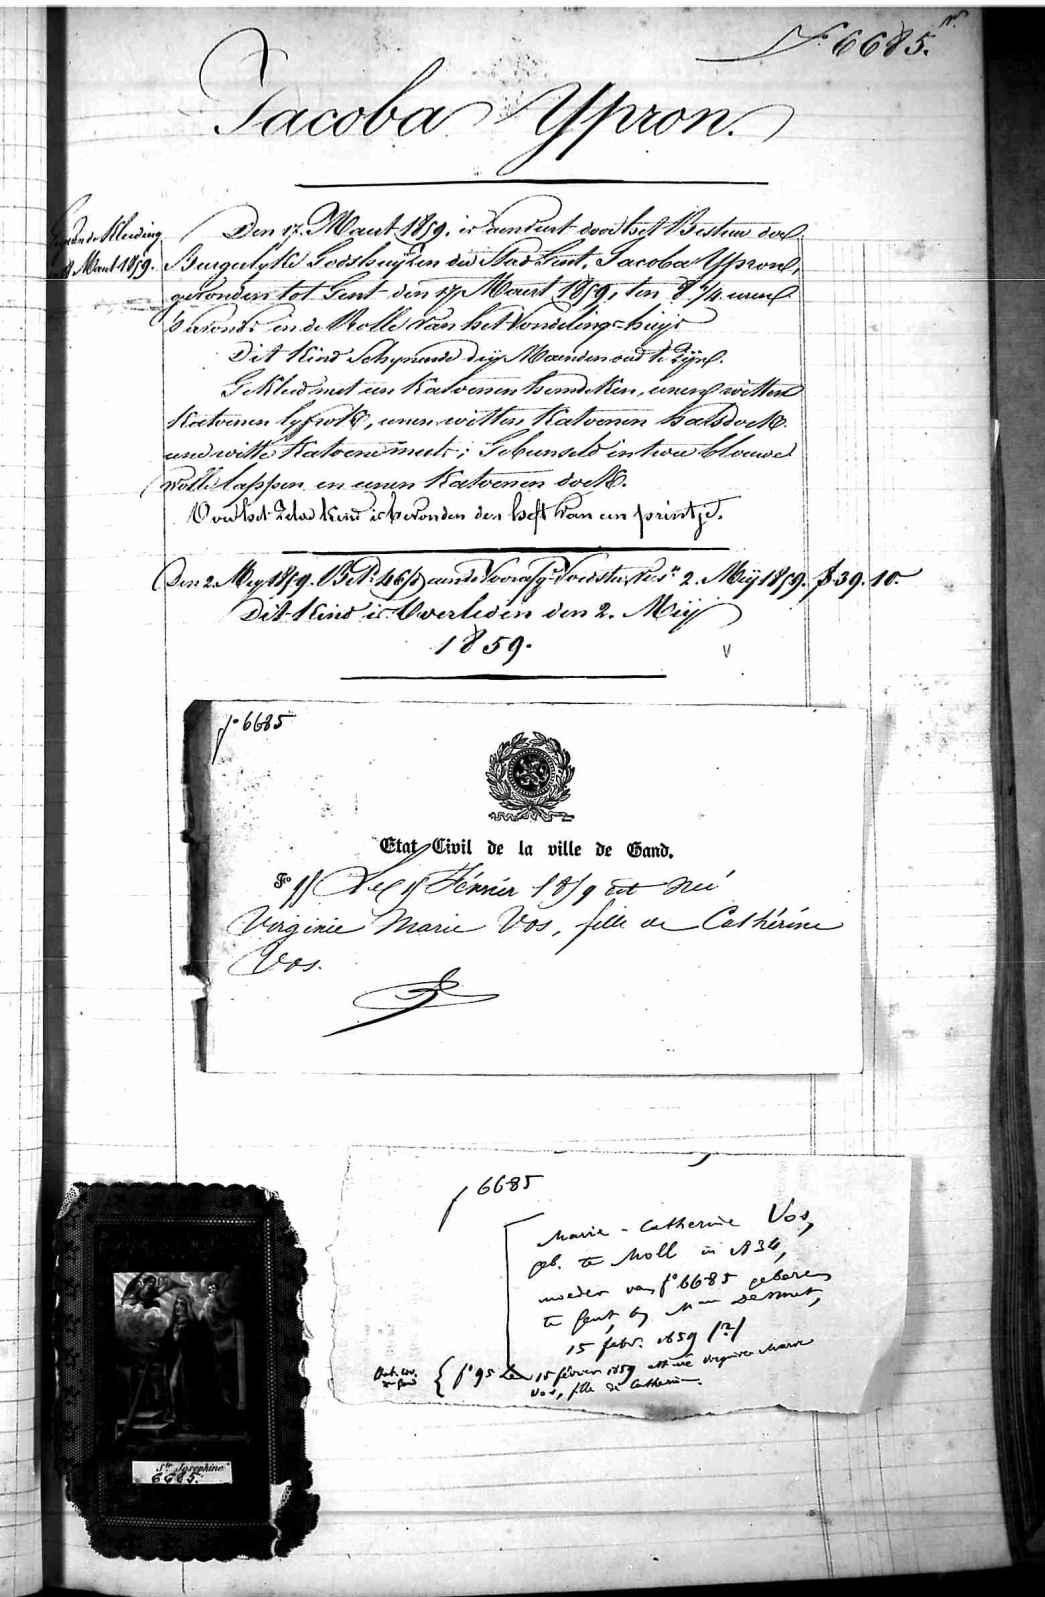 f° 6685.
Jacoba Ypron.
Kleeding
Maart 1859.
Den 17. Maart 1859. is aenveert door het Bestuer der
Burgerlyke Godshuyzen der Stad Gent, Jacoba Ypron,
gevonden tot Gent den 17 Maart 1859, ten 8 1/4 uren
's avonds in de Rolle van het Vondeling-huys
Dit Kind Schynende dry Maenden oud te Zyn.
Gekleed met een Katoenen hemdeken, eenen witten
Katoenen lyfrok, eenen witten Katoenen halsdoek
eene witte Katoene muts; Gebunseld in twee blauwe
wolle lappen en eenen Katoenen doek.
Op het Zelve kind is gevonden den helft van een printje.
Den 2. Mey 1859. aende Voorsz. Voedster 2. Mey 1859. f 39. 10.
Dit Kind is Overleden den 2. Mey
1859.
f° 6685
Etat Civil de la ville de Gand.
F° 95 Le 15 Février 1859 est née
Virginie Marie Vos, fille de Cathérine
Vos.
f 6685
Marie-Catherine Vos,
geb. te Moll in 1834,
moeder van f° 6685 geboren
te Gent, by Mme Desmet,
15 febr. 1859 (?)
f° 95 Le 15 février 1859 est née Virginie Marie
Vos, fille de Catherine.
Ste Josephine
6685.